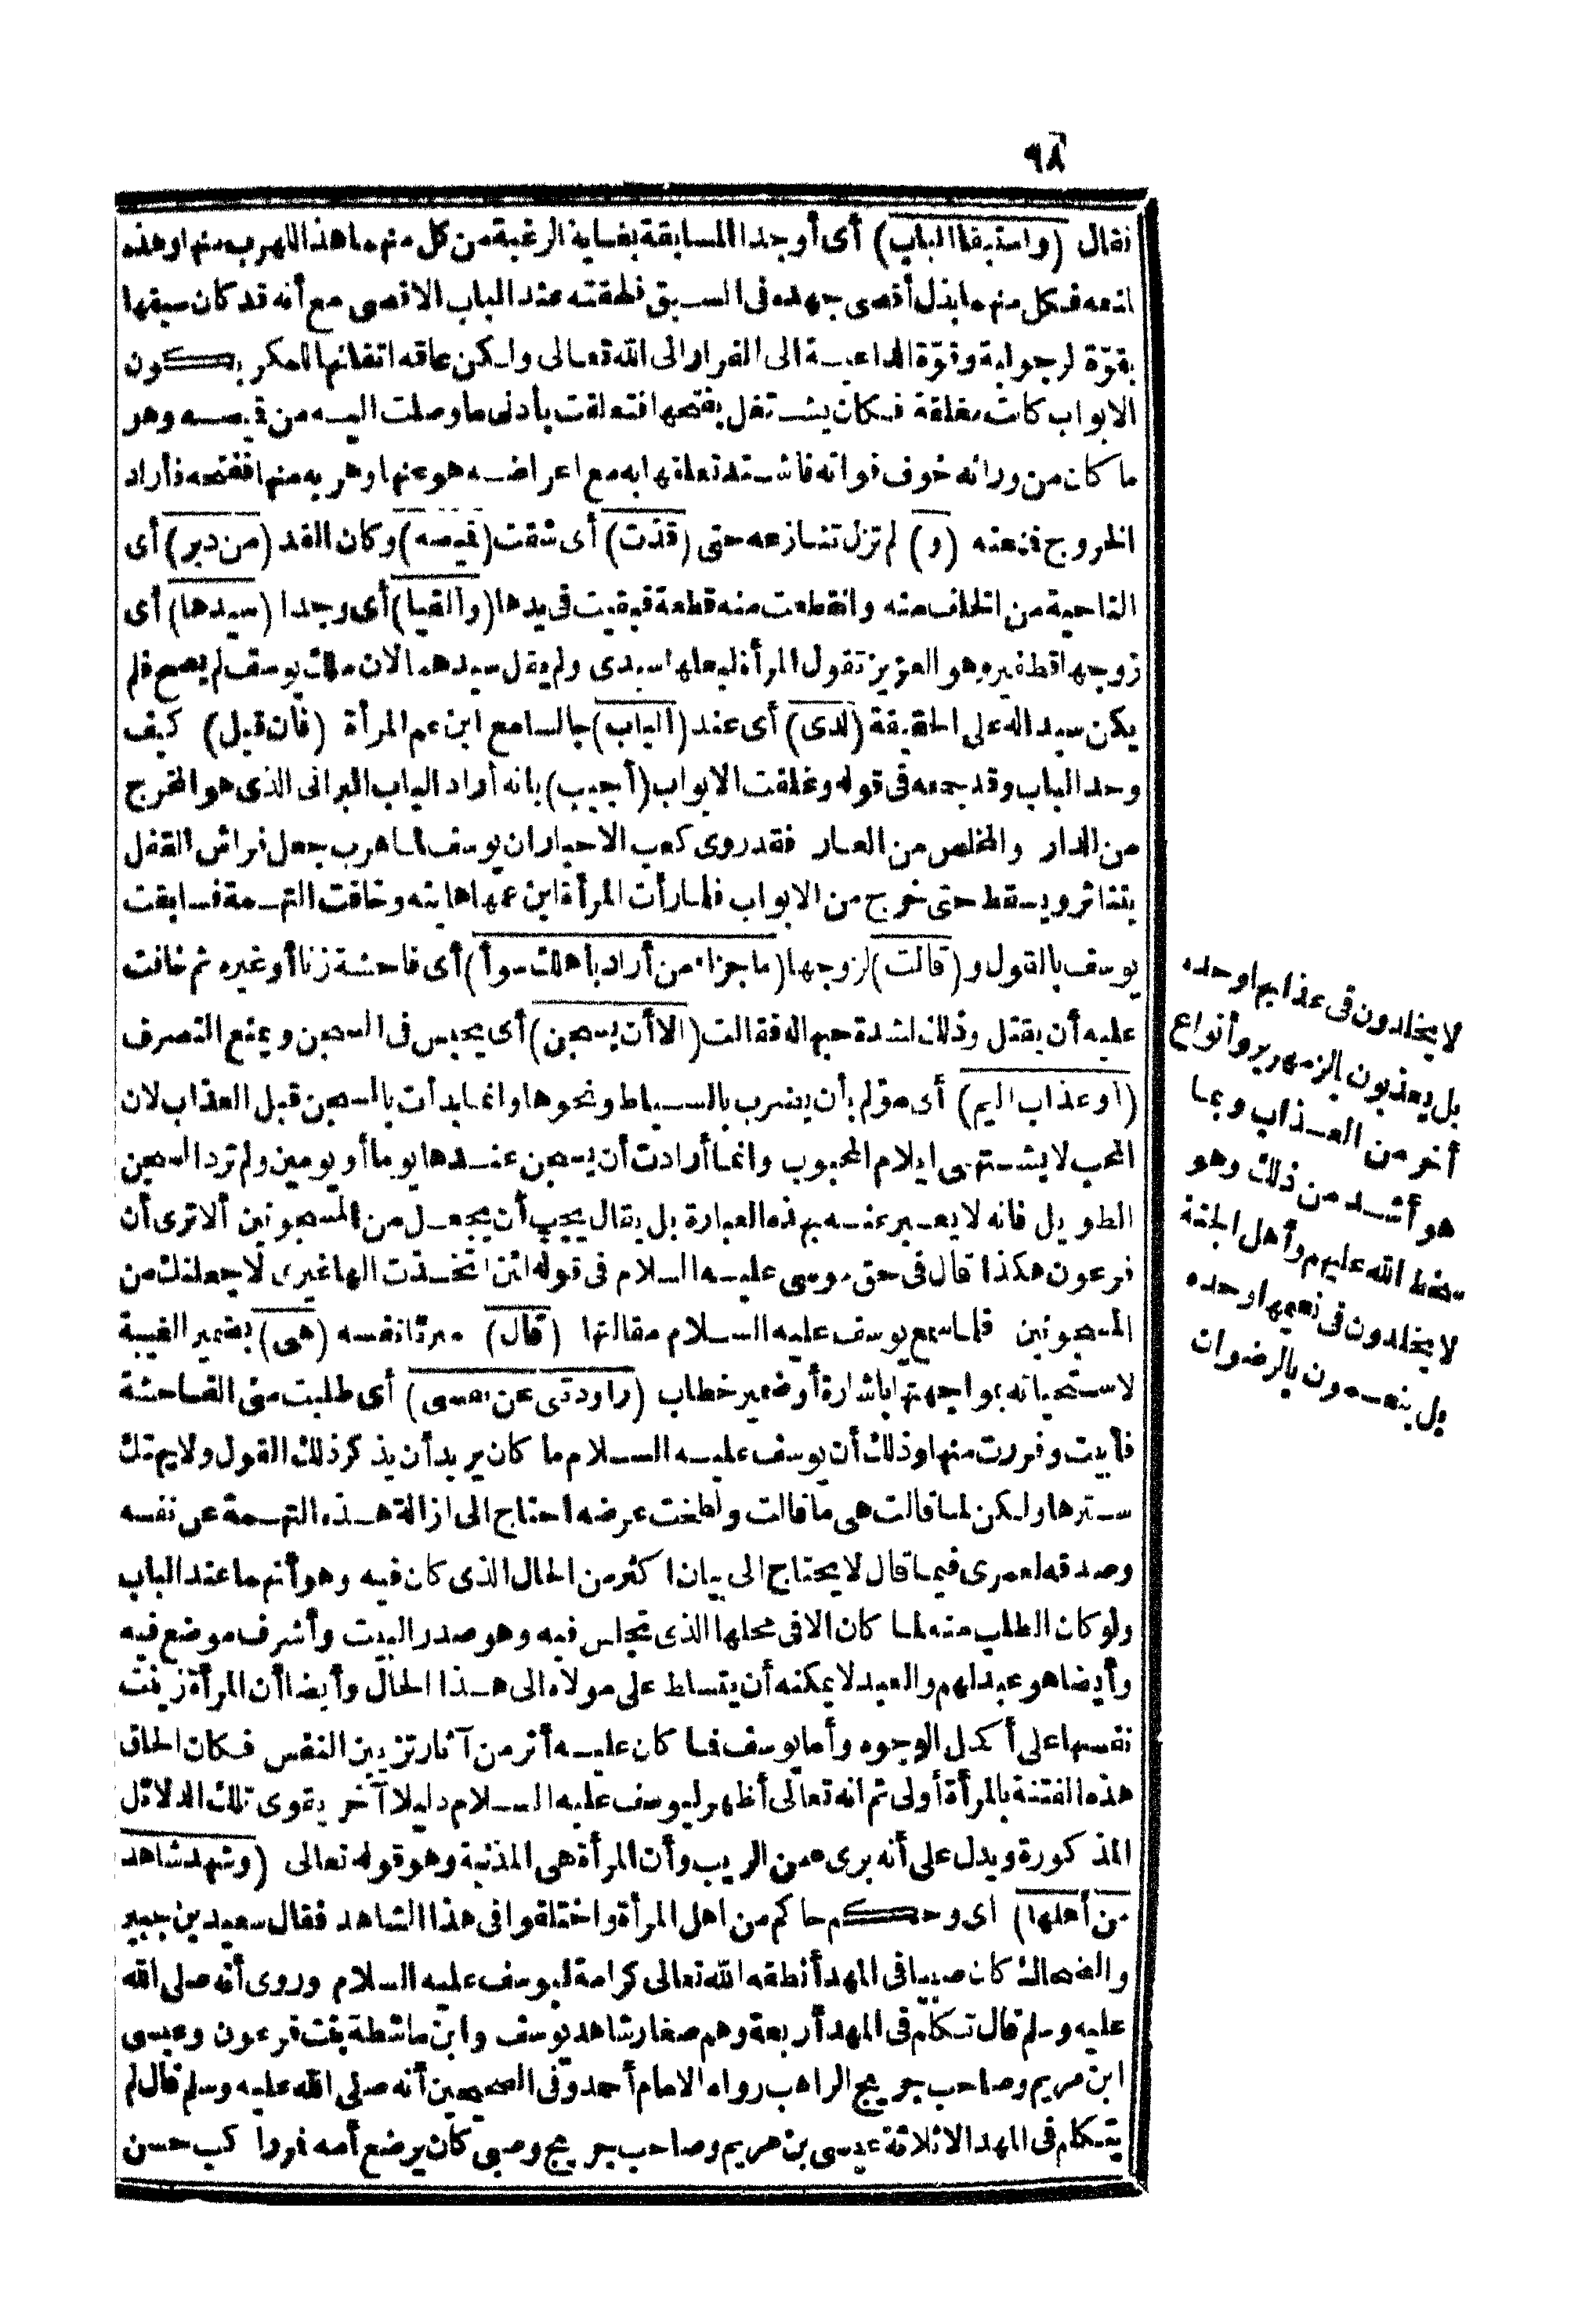 ٩٨
فقال (واستبقا الباب) أى أوجدا المسابقة بغاية الرغبة من كل منهما هذا للهرب منها وهذه
لمنعه فكل منهما بذل أقصى جهده فى السبق فلحقته عند الباب الاقصى مع أنه قد كان سبقها
بقوّة الرجولية وقوّة الداعية الى الفرار الى الله تعالى ولكن عاقه اتقانها للمكر بكون
الابواب كانت مغلقة فكان يشتغل بفتحها فتعلقت بأدنى ما وصلت اليه من قميصه وهو
ما كان من ورائه خوف فواته فاشتد تعلقها به مع اعراضه هو عنها وهربه منها ففتحه فأراد
الخروج فمنعته (و) لم تزل تنازعه حتى (قدّت) أى شقت (قميصه) وكان القد (من دبر) أى
الناحية من الخلف منه وانقطعت منه قطعة فبقيت فى يدها (وألفيا) أى وجدا (سيدها) أى
زوجها قطفير وهو العزيز تقول المرأة لبعلها سيدى ولم يقل سيدهما لان ملك يوسف لم يصح فلم
يكن سيدا له على الحقيقة (لدى) أى عند (الباب) جالسا مع ابن عم المرأة (فان قيل) كيف
وحد الباب وقد جمعه فى قوله وغلقت الابواب (أجيب) بانه أراد الباب البرانى الذى هو المخرج
من الدار والمخلص من العار فقد روى كعب الاحبار ان يوسف لما هرب جعل فراش القفل
يتناثر ويسقط حتى خرج من الابواب فلما رأت المرأة ابن عمها هابته وخافت التهمة فسابقت
يوسف بالقول و (قالت) لزوجها (ما جزاء من أراد بأهلك سوأ) أى فاحشة زنا أو غيره ثم خافت
عليه أن يقتل وذلك لشدة حبها له فقالت (الا أن يسجن) أى يحبس فى السجن ويمنع التصرف
(أو عذاب اليم) أى مؤلم بأن يضرب بالسياط ونحوها وانما بدأت بالسجن قبل العذاب لان
المحب لا يشتهى ايلام المحبوب وانما أرادت أن يسجن عندها يوما أو يومين ولم ترد السجن
الطويل فانه لا يعبر عنه بهذه العبارة بل يقال يجب أن يجعل من المسجونين ألا ترى أن
فرعون هكذا قال فى حق موسى عليه السلام فى قوله لئن اتخذت الها غيرى لاجعلنك من
المسجونين فلما سمع يوسف عليه السلام مقالتها (قال) مبرئا نفسه (هى) بضمير الغيبة
لاستحيائه بمواجهتها باشارة أو ضمير خطاب (راودتنى عن نفسى) أى طلبت منى الفاحشة
فأبيت وفررت منها وذلك أن يوسف عليه السلام ما كان يريد أن يذكر ذلك القول ولا يهتك
سترها ولكن لما قالت هى ما قالت ولطخت عرضه احتاج الى ازالة هذه التهمة عن نفسه
وصدقه لعمرى فيما قال لا يحتاج الى بيان اكثر من الحال الذى كان فيه وهو أنهما عند الباب
ولو كان الطلب منه لما كان الا فى محلها الذى تجلس فيه وهو صدر البيت وأشرف موضع فيه
وأيضا هو عبد لهم والعبد لا يمكنه أن يتسلط على مولاه الى هذا الحال وأيضا أن المرأة زينت
نفسها على أكمل الوجوه وأما يوسف فما كان عليه أثر من آثار تزيين النفس فكان الحاق
هذه الفتنة بالمرأة أولى ثم انه تعالى أظهر ليوسف عليه السلام دليلا آخر يقوى تلك الدلائل
المذكورة ويدل على أنه برىء من الريب وأن المرأة هى المذنبة وهو قوله تعالى (وشهد شاهد
من أهلها) أى وحكم حاكم من اهل المرأة واختلفوا فى هذا الشاهد فقال سعيد بن جبير
والضحاك كان صبيا فى المهد أنطقه الله تعالى كرامة ليوسف عليه السلام وروى أنه صلى الله
عليه وسلم قال تكلم فى المهد أربعة وهم صغار شاهد يوسف وابن ماشطة بنت فرعون وعيسى
ابن مريم وصاحب جريج الراهب رواه الامام أحمد وفى الصحيحين أنه صلى الله عليه وسلم قال لم
يتكلم فى المهد الا ثلاثة عيسى بن مريم وصاحب جريج وصبى كان يرضع أمه فمر راكب حسن
لا يخلدون فى عذابها وحده
بل يعذبون بالزمهرير وأنواع
أخر من العذاب وبما
هو أشد من ذلك وهو
سخط الله عليهم وأهل الجنة
لا يخلدون فى نعيمها وحده
بل ينعمون بالرضوان